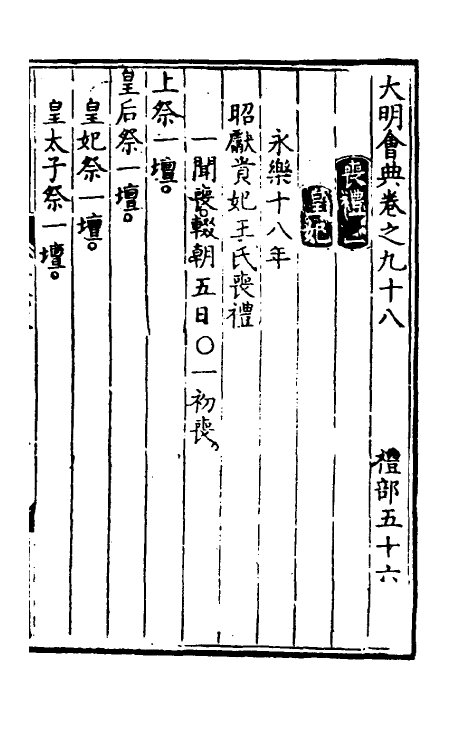 大明會典卷之九十八　禮部五十六
喪禮三
皇妃
永樂十八年
昭獻貴妃王氏喪禮
一聞喪。輟朝五日〇一初喪。
上祭一壇。
皇后祭一壇。
皇妃祭一壇。
皇太子祭一壇。